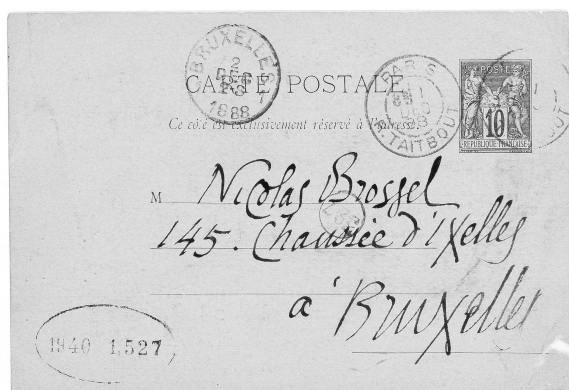 BRUXELLES 1
2
DEC
1888
CARTE POSTALE
PARIS
1
R. TAITBOUT
POSTE
10
REPUBLIQUE FRANÇAISE
Ce côté est exclusivement réservé à l'adresse.
M Nicolas Brossel
145. Chaussée d'Ixelles
à Bruxelles
1940 1,527